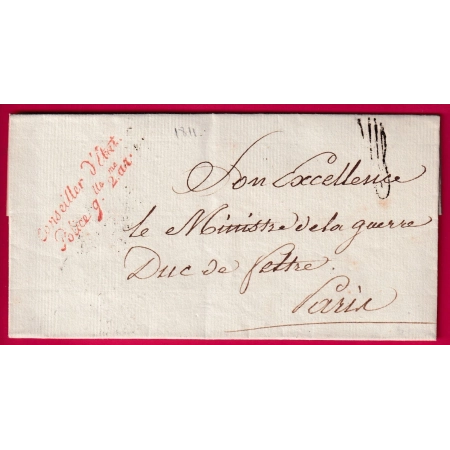 1811.
Conseiller d'Etat
Police g.lle 2.me ar.
Son Excellence
le Ministre de la guerre
Duc de feltre.
Paris